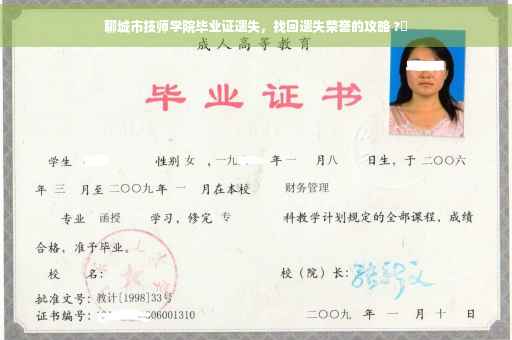 聊城市技师学院毕业证遗失，找回遗失荣誉的攻略 ?
成人高等教育
毕业证书
学生 性别 女 ，一九 年 一 月 八 日生，于 二〇〇六
年 三 月至 二〇〇九 年 一 月在本校 财务管理
专业 函授 学习，修完 专 科教学计划规定的全部课程，成绩
合格，准予毕业。
校 名： 校（院）长：
批准文号：教计[1998]33号
证书编号： 06001310 二〇〇九 年 一 月 十 日